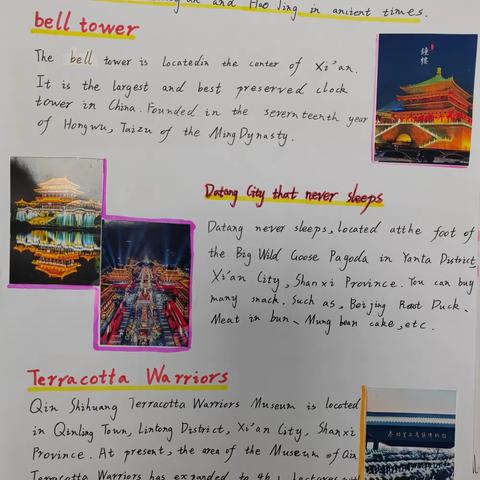 and Hao Jing in ancient times.
bell tower
The bell tower is locatedin the center of Xi'an.
It is the largest and best preserved clock
tower in China. Founded in the severnteenth year
of Hongwu, Taizu of the Ming Dynasty.
钟楼
Datang City that never sleeps
Datang never sleeps, located atthe foot of
the Big Wild Goose Pagoda in Yanta District,
Xi'an City, Shanxi Province. You can buy
many snack. Such as, Beijing Roast Duck、
Meat in bun、Mung bean cake, etc.
Terracotta Warriors
Qin Shihuang Terracotta Warriors Museum is located
in Qinling Town, Lintong District, Xi'an City, Shanxi
Province. At present, the area of the Museum of Qin
Terracotta Warriors has expanded to 46.